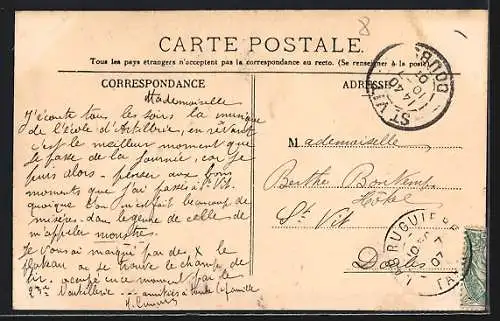 8
CARTE POSTALE.
Tous les pays étrangers n'acceptent pas la correspondance au recto. (Se renseigner à la poste)
CORRESPONDANCE
ADRESSE
Mademoiselle
J'écoute tous les soirs la musique
de l'école d'Artillerie, en rêvant
c'est le meilleur moment que
je passe de la journée, car je
puis alors penser aux bons
moments que j'ai passés à St Vit.
quoique l'on m'ait fait beaucoup de
misères. dans le genre de celle de
m'appeler monstre.
Je vous ai marqué par des X le
plateau où se trouve le champ de
tir. occupé en ce moment par le
Mademoiselle
Berthe Bontemps
Hotel
St Vit
Doubs
ST VIT
DOUBS